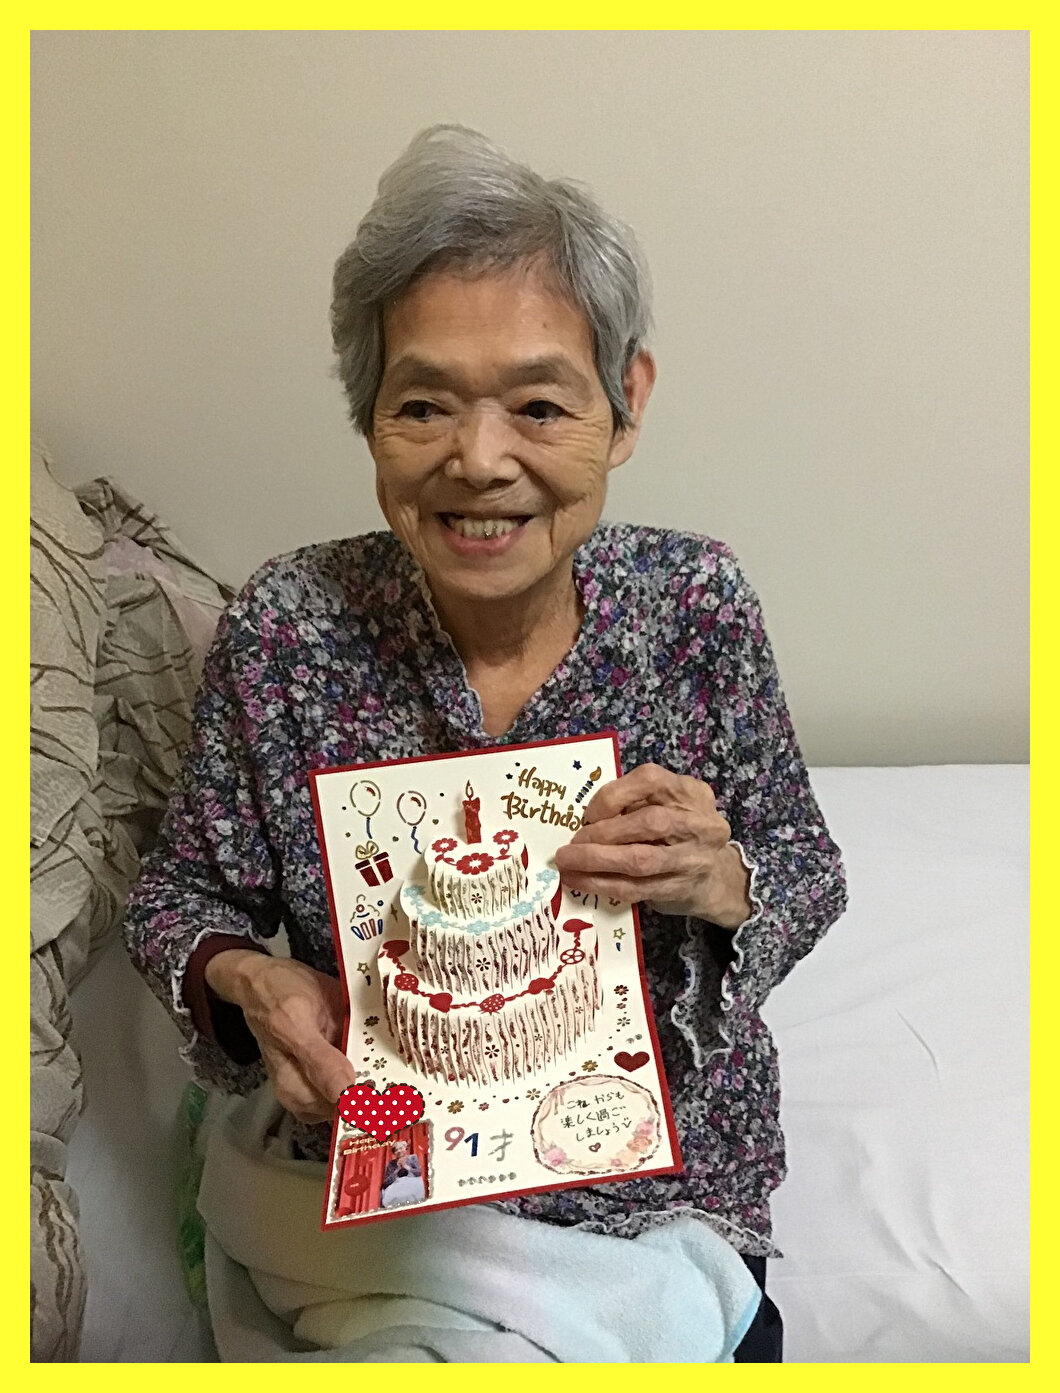 Happy
Birthday
91才
これからも
楽しく過ご
しましょう
Happy
Birthday